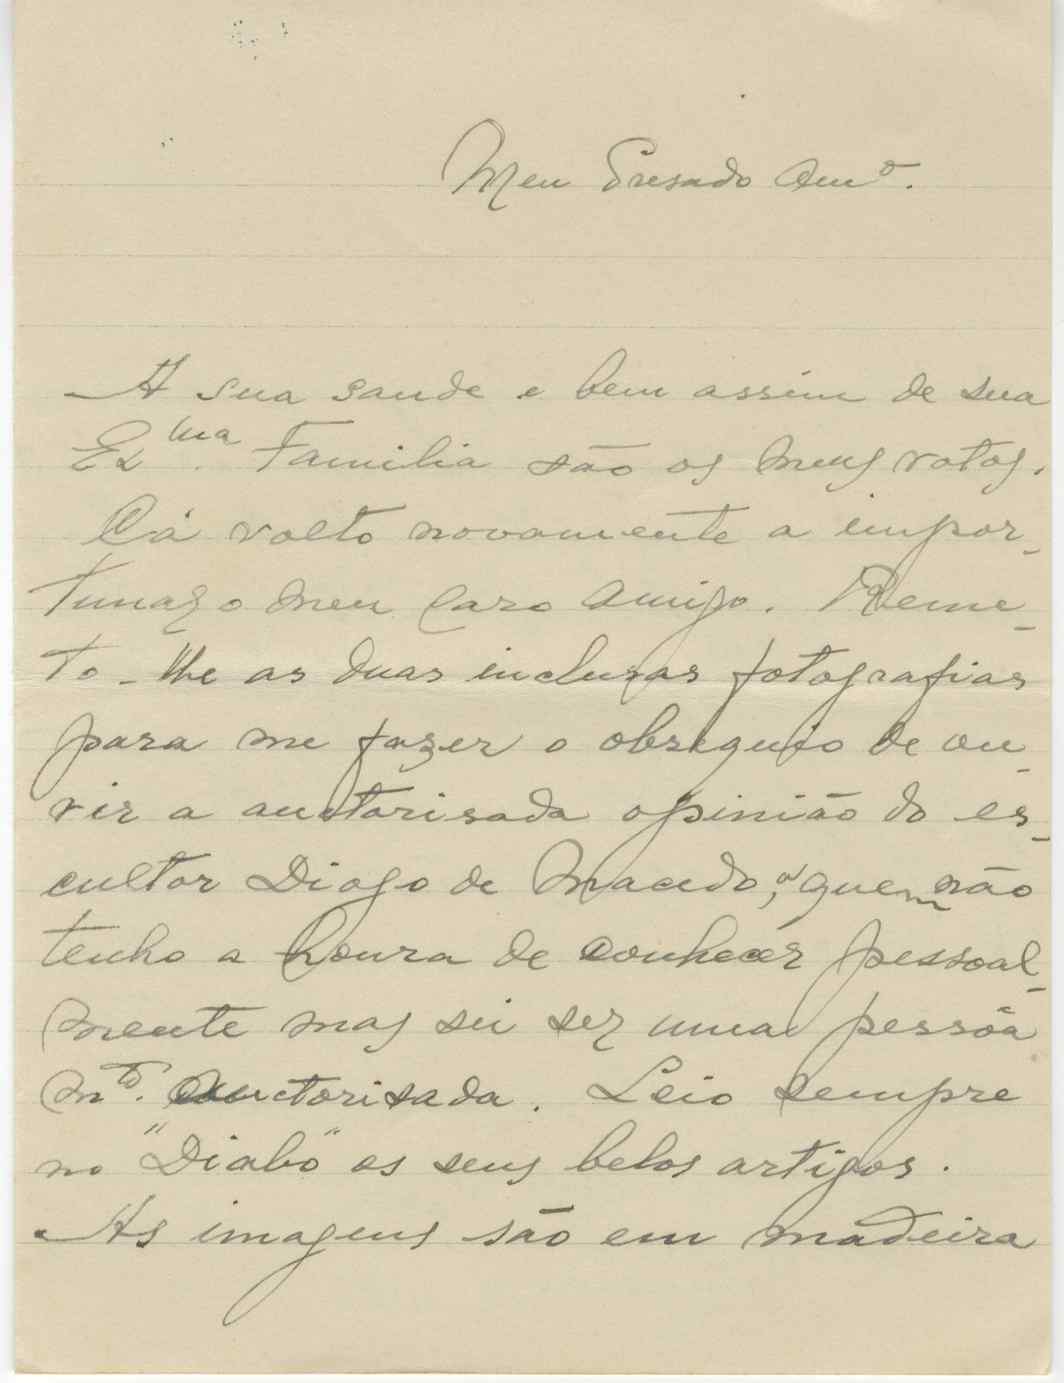 Meu Presado Amº.
A sua saude e bem assim de sua
Exma. Familia são os meus votos.
Cá volto novamente a impor-
tunar o meu Caro Amigo. Reme-
to-lhe as duas inclusas fotografias
para me fazer o obsequio de ou-
vir a auctorisada opinião do es-
cultor Diogo de Macedo, a quem não
tenho a honra de conhecer pessoal-
mente mas sei ser uma pessôa
mto. auctorisada. Leio sempre
no "Diabo" os seus belos artigos.
As imagens são em madeira